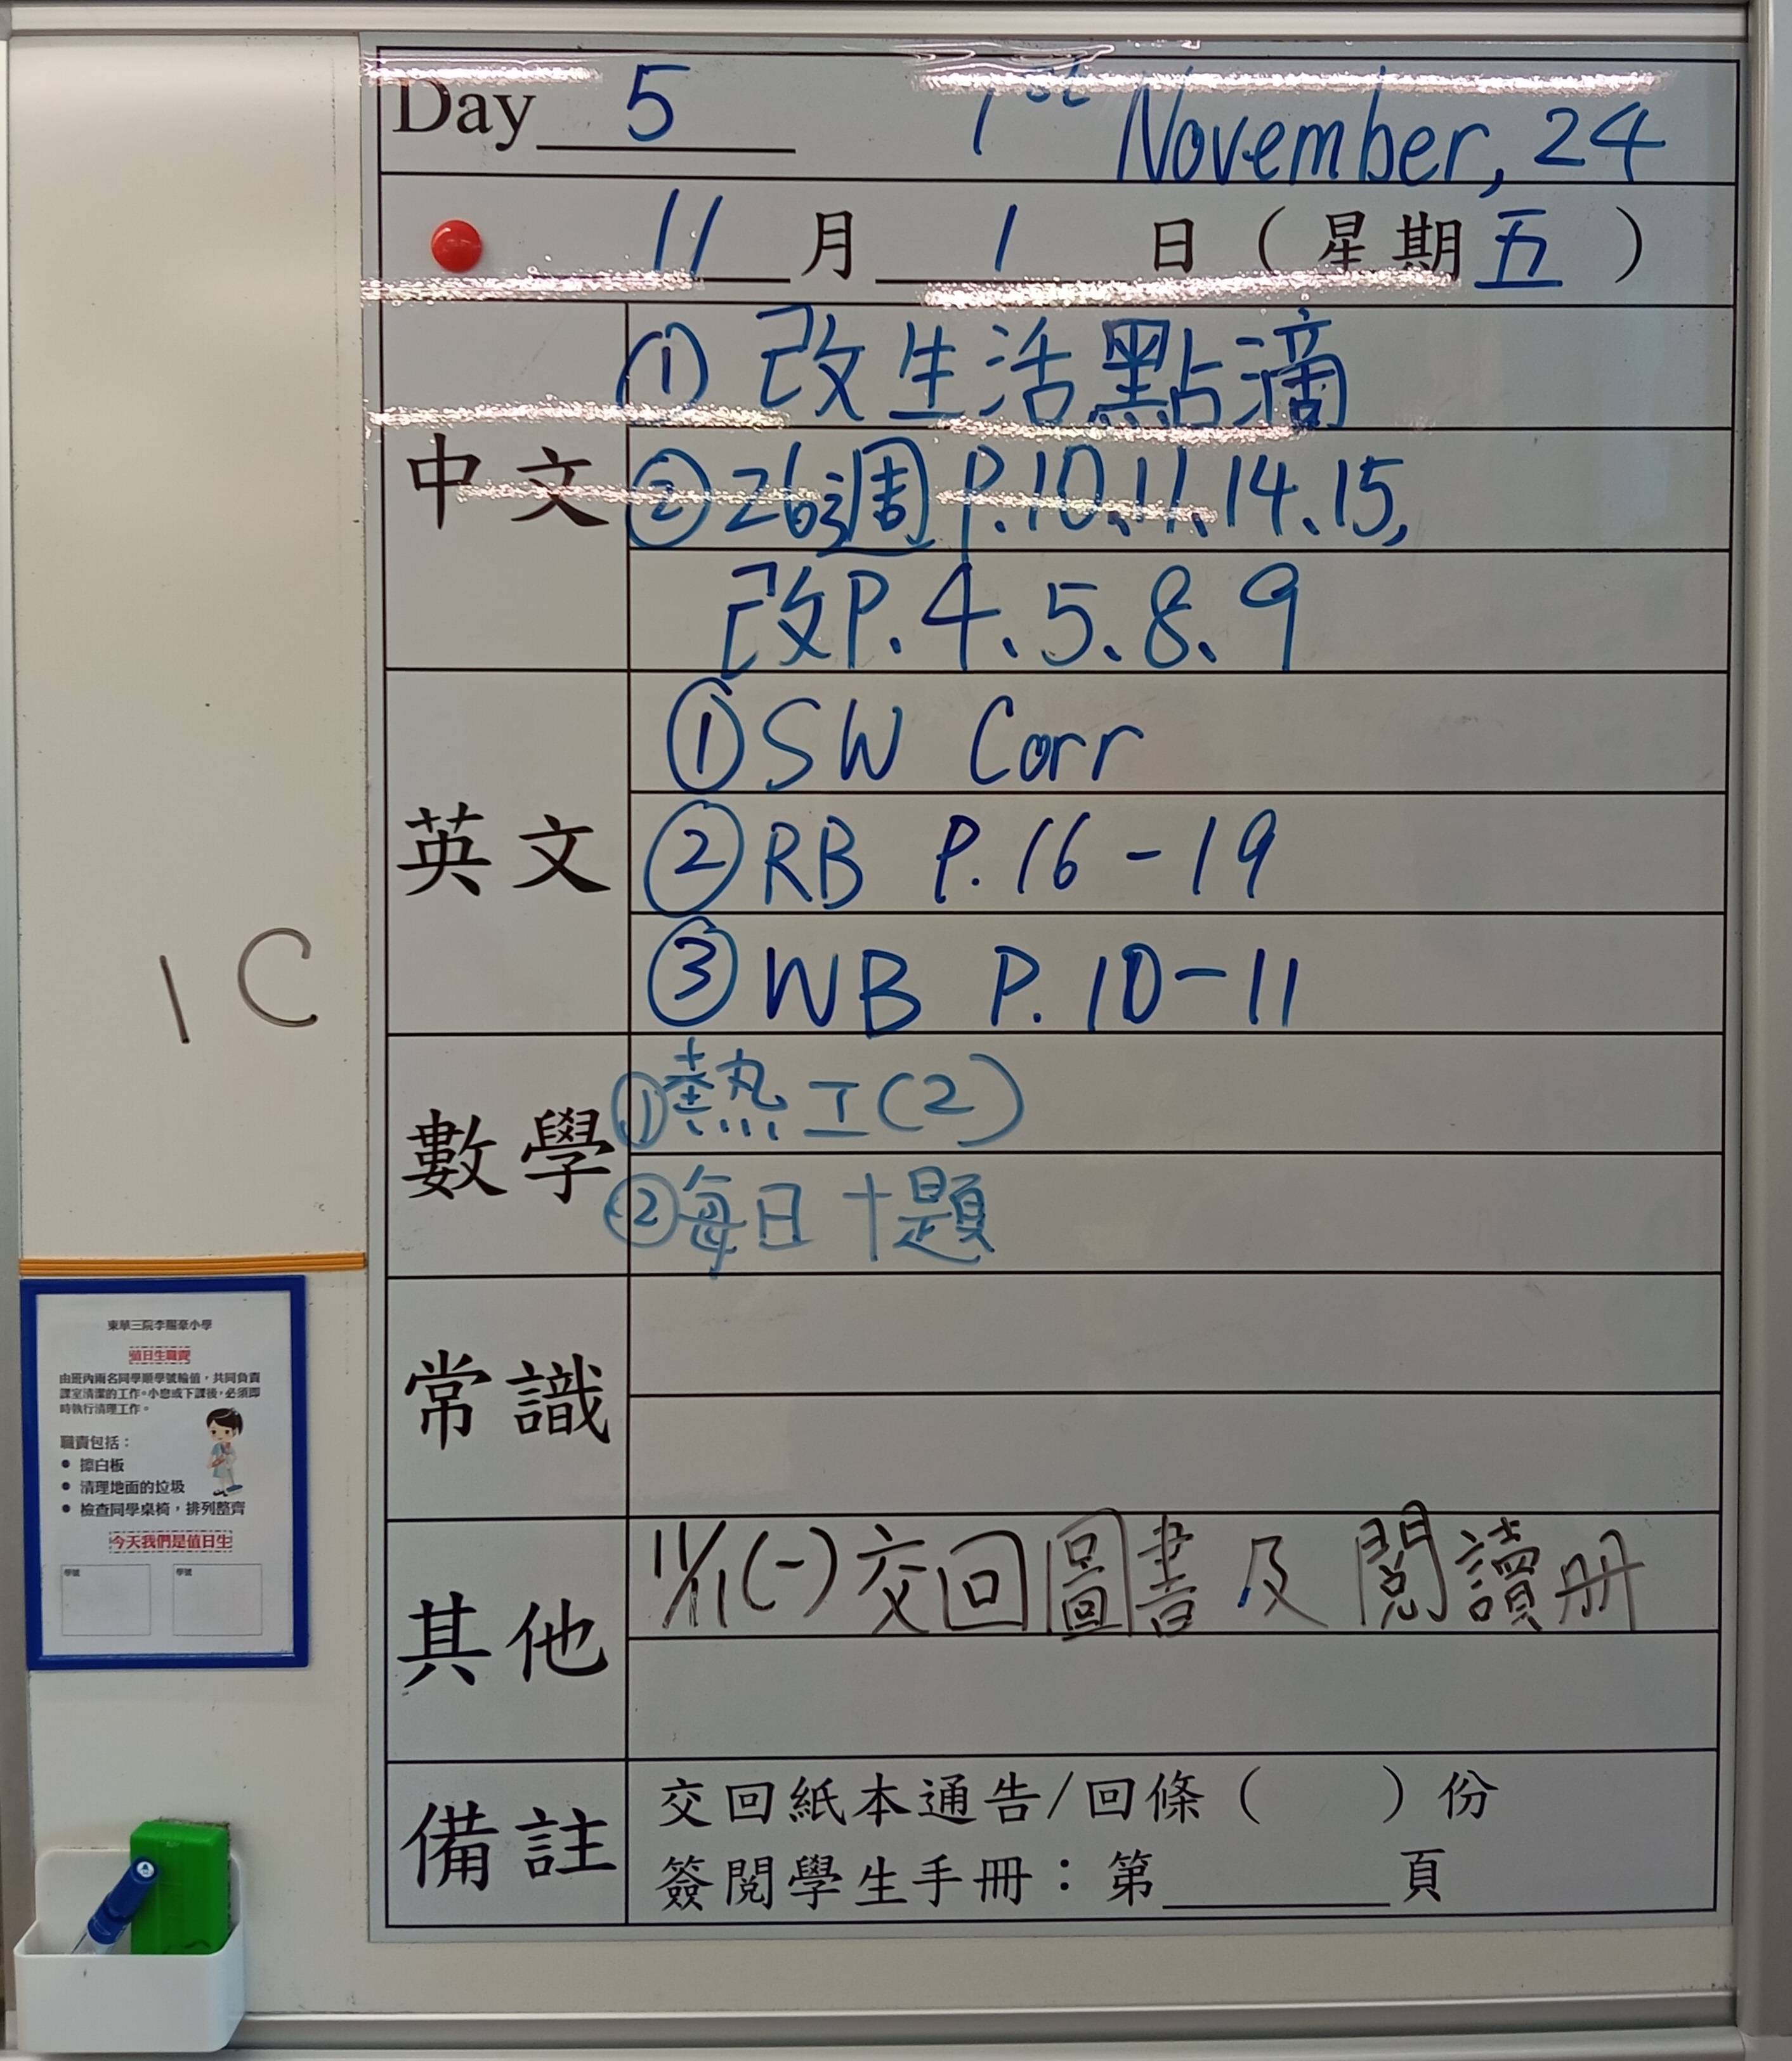 Day 5 1st November, 24
11 月 1 日 ( 星期五 )
中文
① 改生活點滴
② 26週 P.10、11、14、15,
改P.4、5、8、9
英文
① SW Corr
② RB P.16-19
③ WB P.10-11
1C
數學
① 熱工(2)
② 每日十題
常識
其他
11/11(一)交回圖書及閱讀册
備註
交回紙本通告/回條( )份
簽閱學生手冊：第____頁
東華三院李賜豪小學
值日生職責
由班內兩名同學順學號輪值，共同負責
課室清潔的工作。小息或下課後，必須即
時執行清理工作。
職責包括：
● 擦白板
● 清理地面的垃圾
● 檢查同學桌椅，排列整齊
今天我們是值日生
學號 學號